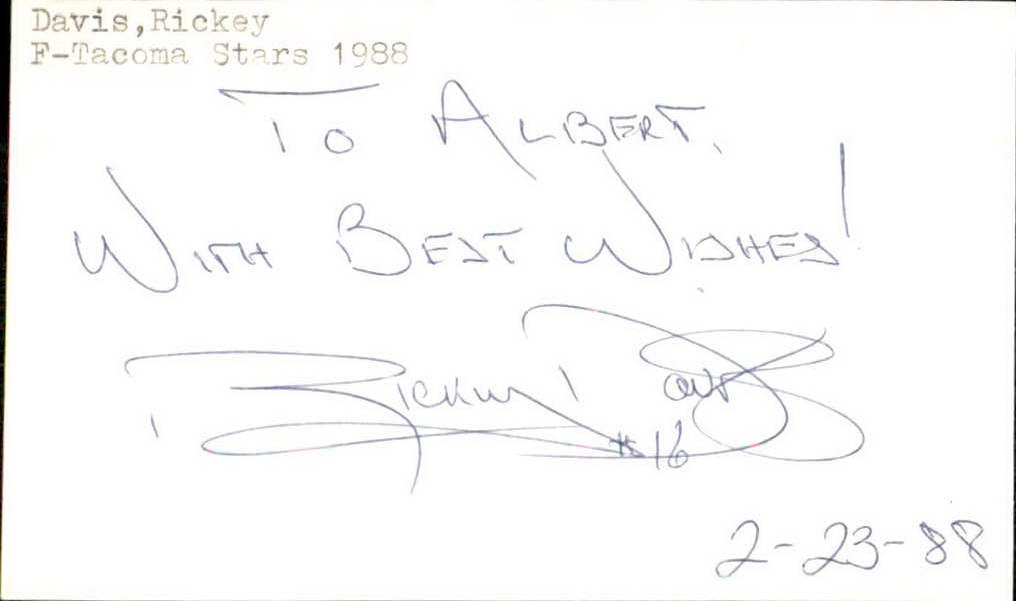 Davis,Rickey
F-Tacoma Stars 1988
To Albert,
With Best Wishes!
Rickey Davis
#16
2-23-88